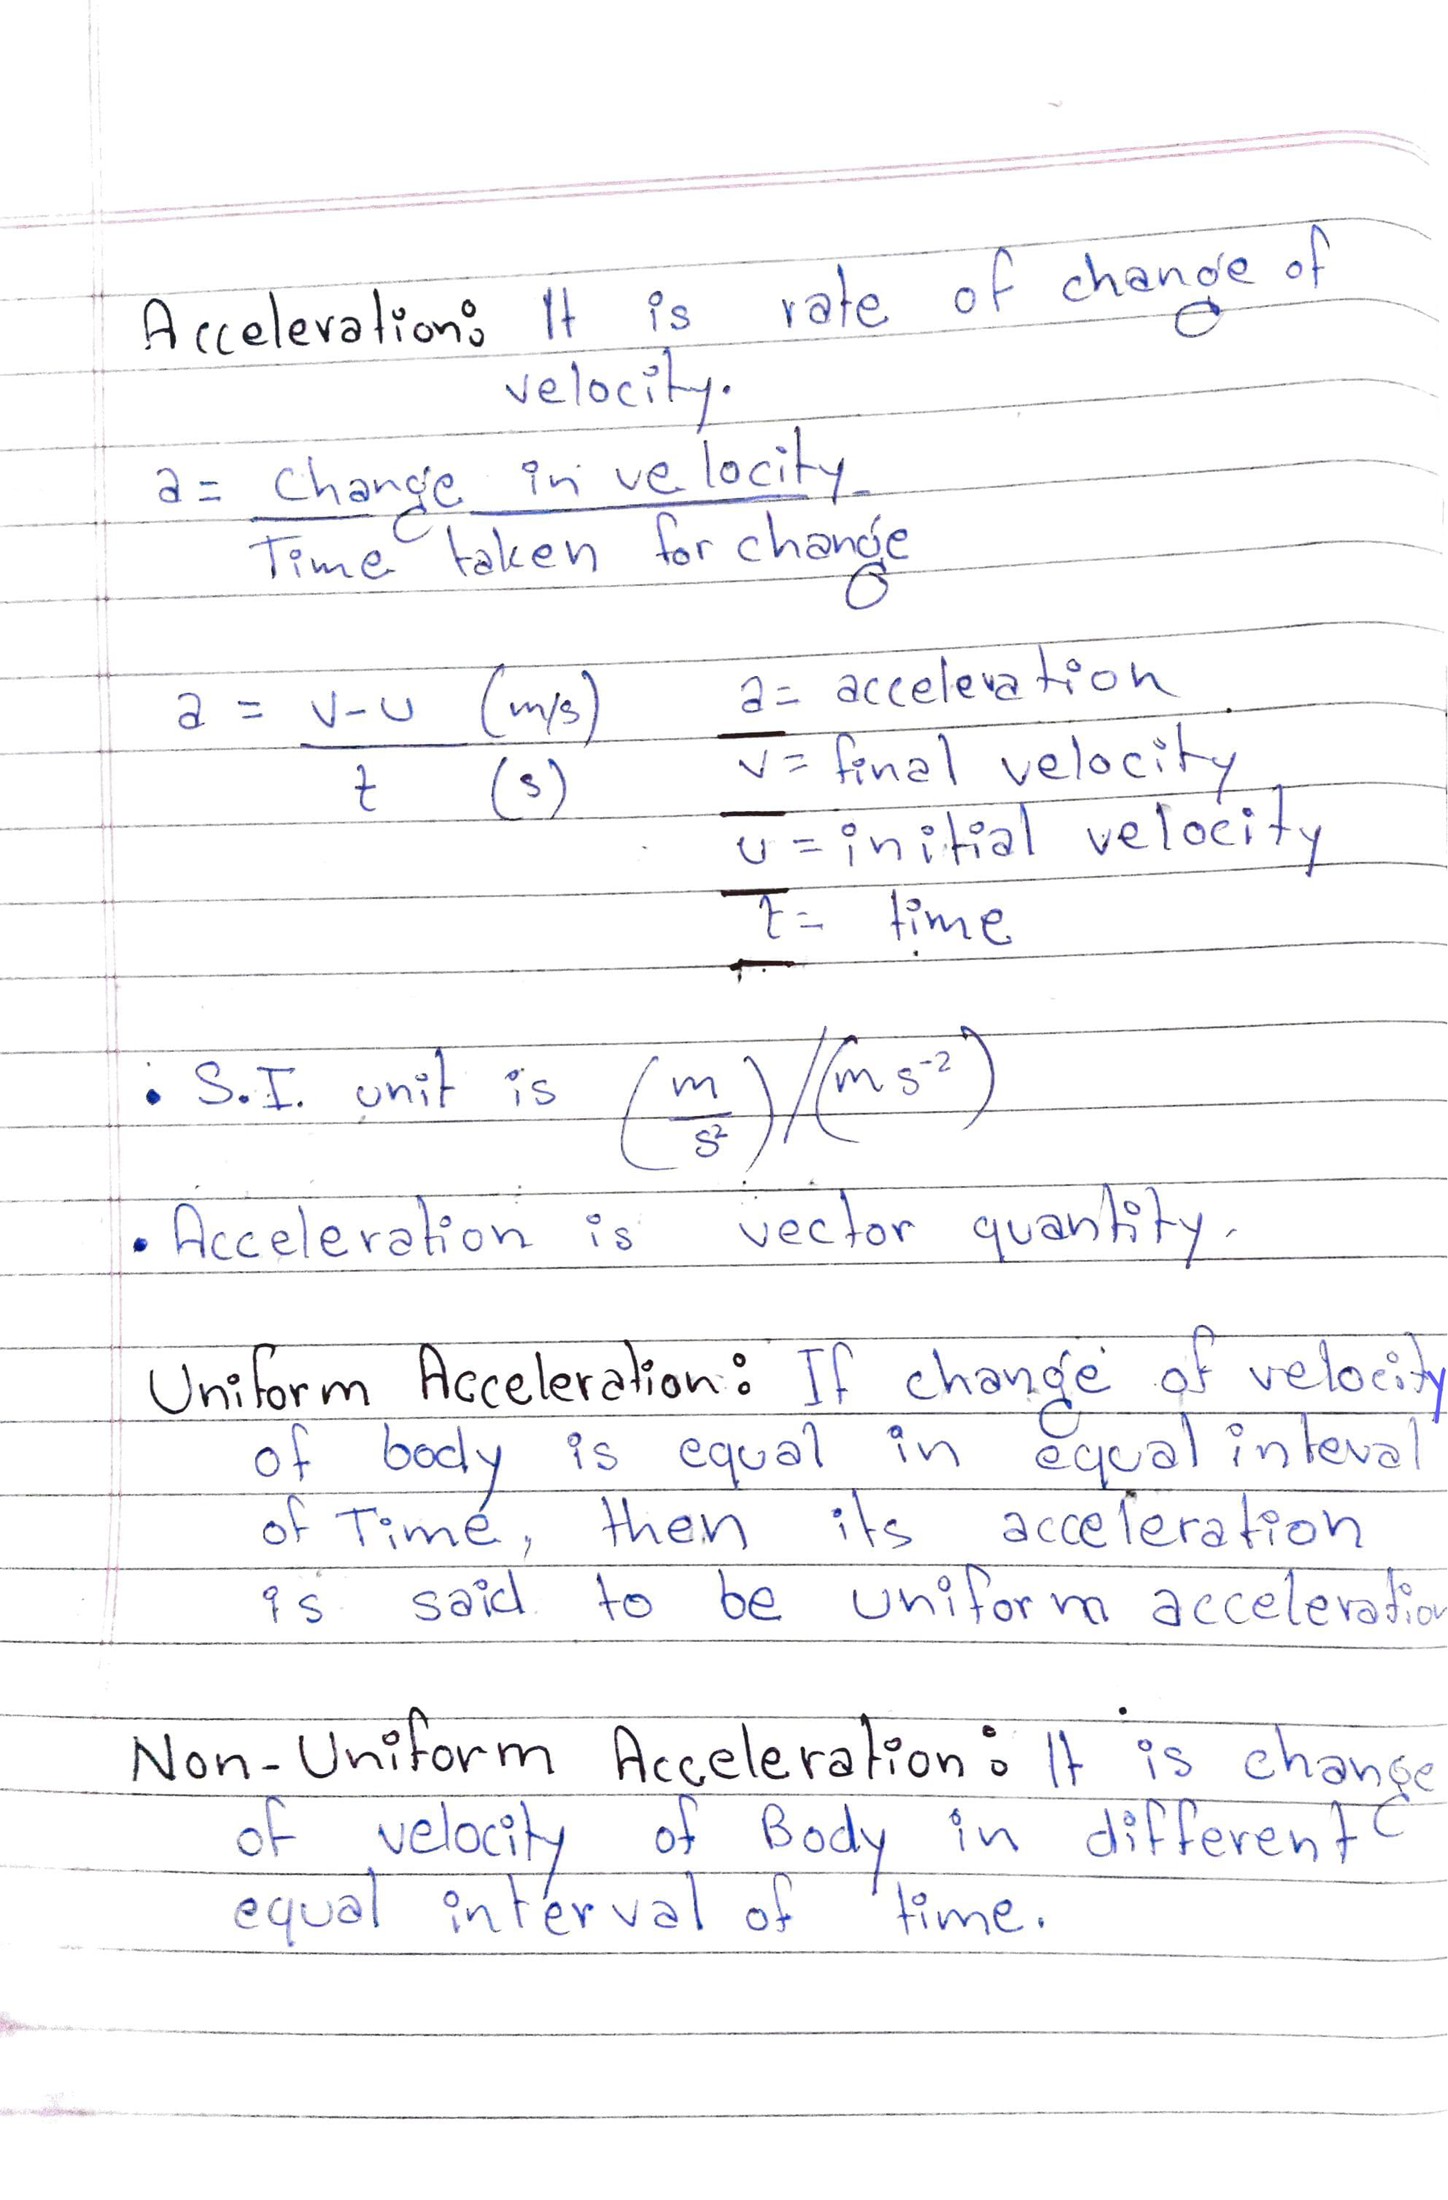 Acceleration: It is rate of change of
velocity.
a = change in velocity
Time taken for change
a = v-u (m/s)
t (s)
a = acceleration
v = final velocity
u = initial velocity
t = time
• S.I. unit is (m/s²)/(ms⁻²)
• Acceleration is vector quantity.
Uniform Acceleration: If change of velocity
of body is equal in equal inteval
of Time, then its acceleration
is said to be uniform acceleration
Non-Uniform Acceleration: It is change
of velocity of Body in different
equal interval of time.